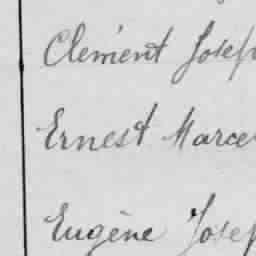 Clément Josep
Ernest Marce
Eugène Josep